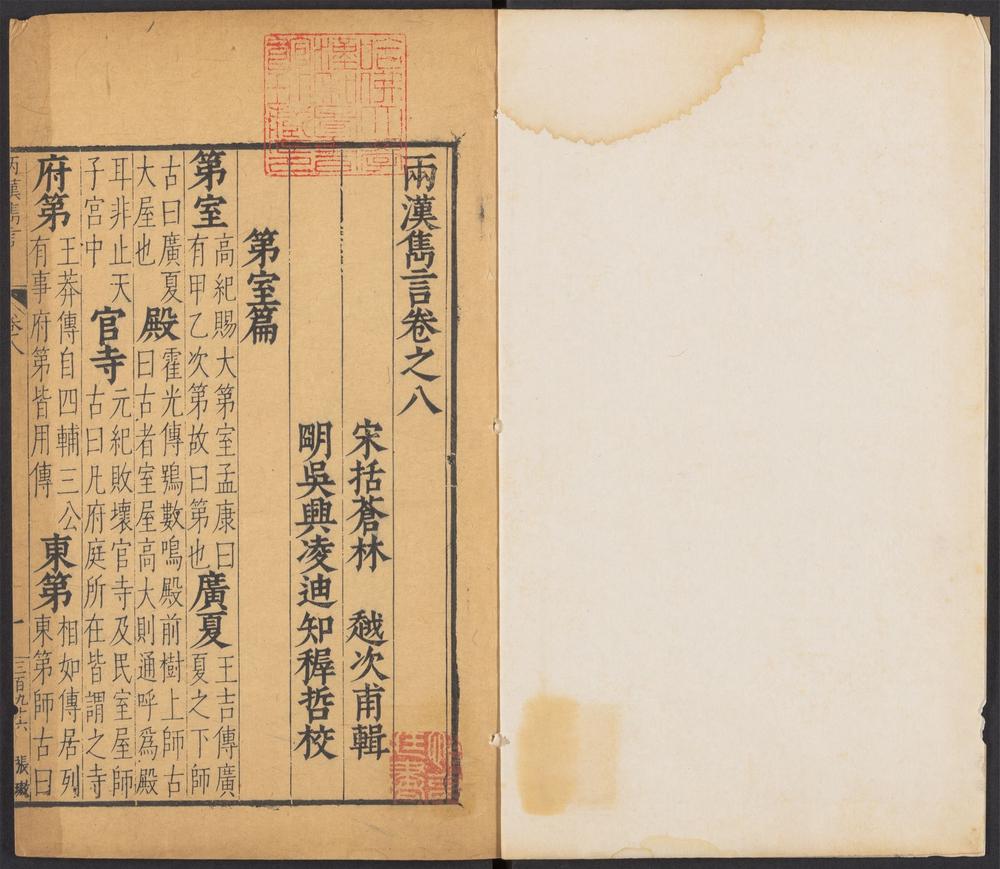 兩漢雋言卷之八
宋括蒼林　越次甫輯
明吳興凌迪知穉哲校
第室篇
第室 高紀賜大第室孟康曰
有甲乙次第故曰第也 廣夏 王吉傳廣
夏之下師
古曰廣夏
大屋也 殿 霍光傳鴞數鳴殿前樹上師古
曰古者室屋高大則通呼爲殿
耳非止天
子宮中 官寺 元紀敗壞官寺及民室屋師
古曰凡府庭所在皆謂之寺
府第 王莽傳自四輔三公
有事府第皆用傳 東第 相如傳居列
東第師古曰
兩漢雋言
卷八
一
三百九十六
張璈
哈佛大學漢和圖書館珍藏印